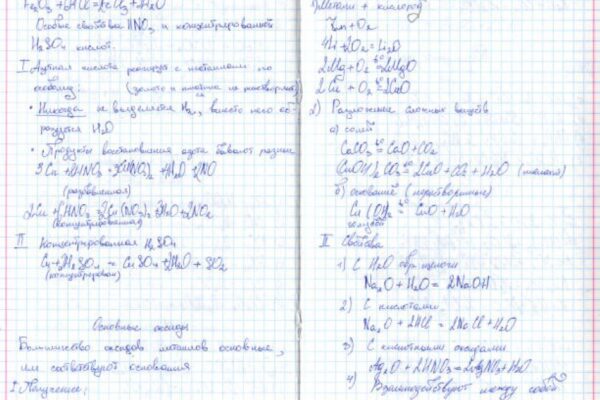 Fe2O3 + 6HCl = FeCl3 + H2O
Особые свойства HNO3 и концентрированной
H2SO4 кислот.
I Азотная кислота реагирует с металлами по
особому. (золото и платина не растворяются)
• Никогда не выделяется H2, вместо него об-
разуется H2O
• Продукты восстановления азота бывают разные
3Cu + 8HNO3 = 3Cu(NO3)2 + 4H2O + 2NO
(разбавленная)
Cu + 4HNO3 = Cu(NO3)2 + H2O + 2NO2
(концентрированная)
II Концентрированная H2SO4
Cu + 2H2SO4 = CuSO4 + 2H2O + SO2
(концентрирован)
Основные оксиды
Большинство оксидов металлов основные,
им соответствуют основания
I Получение:
1) Металл + кислород
4Li + O2 = Li2O
2Mg + O2 = 2MgO
2Cu + O2 = 2CuO
2) Разложение сложных веществ
а) солей
CaCO3 = CaO + CO2
(CuOH)2CO3 = 2CuO + CO2 + H2O (малахит)
б) оснований (нерастворимые)
Cu(OH)2 = CuO + H2O
голубой
II Свойства
1) С H2O обр. щелочи
Na2O + H2O = 2NaOH
2) С кислотами
Na2O + 2HCl = 2NaCl + H2O
3) С кислотными оксидами
Ag2O + 2HNO3 = 2AgNO3 + H2O
4) Взаимодействуют между собой